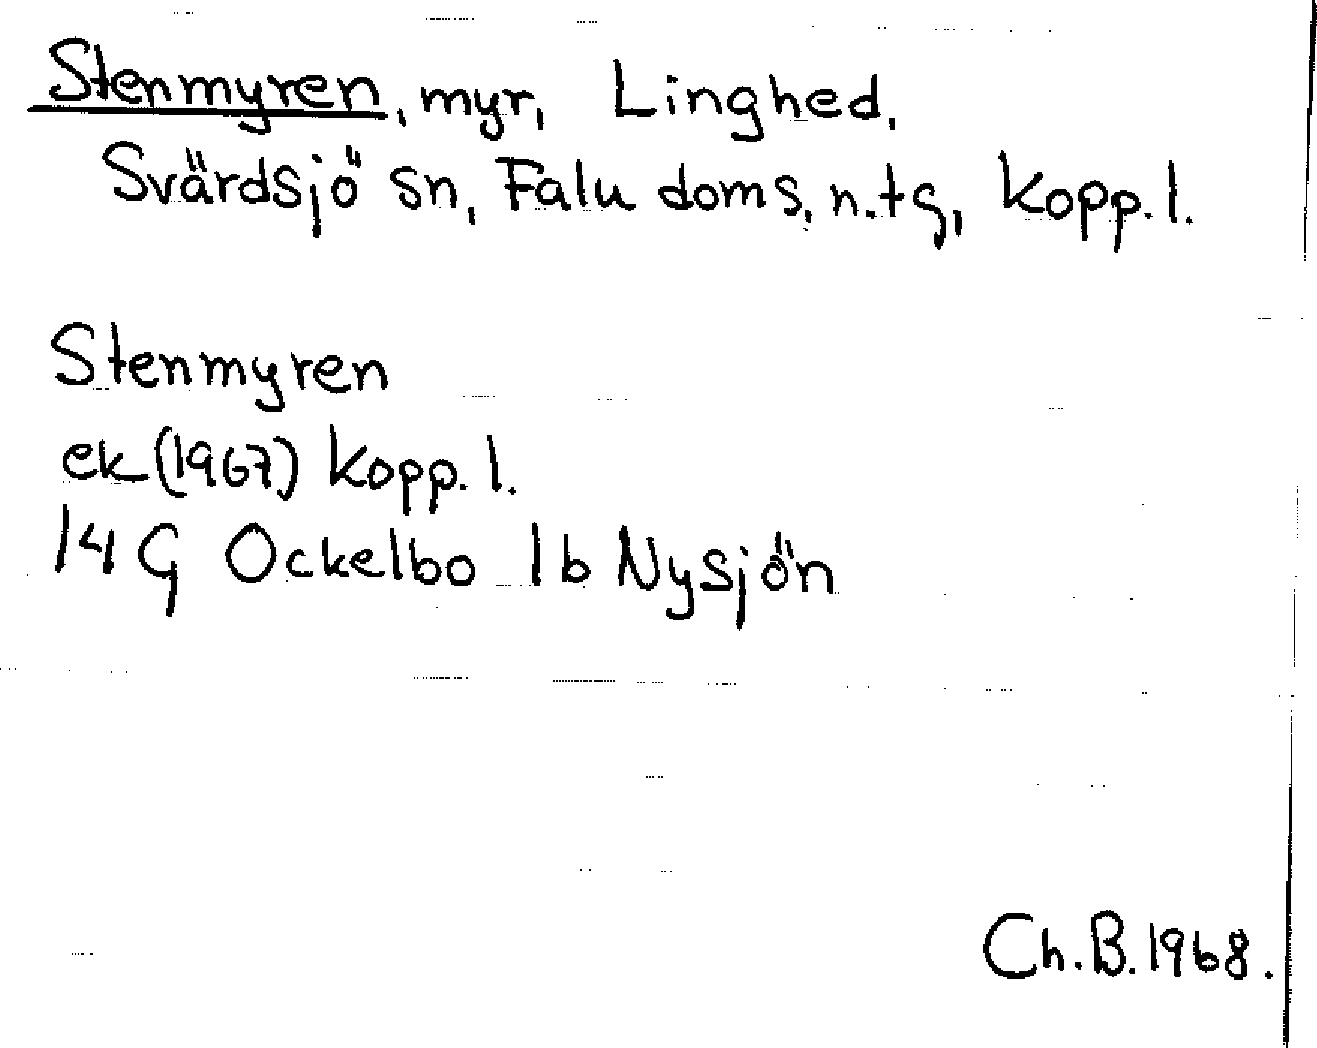 Stenmyren, myr, Linghed,
Svärdsjö sn, Falu doms. n. tg, Kopp. l.
Stenmyren
ek (1967) Kopp. l.
14 G Ockelbo 1 b Nysjön
Ch. B. 1968.